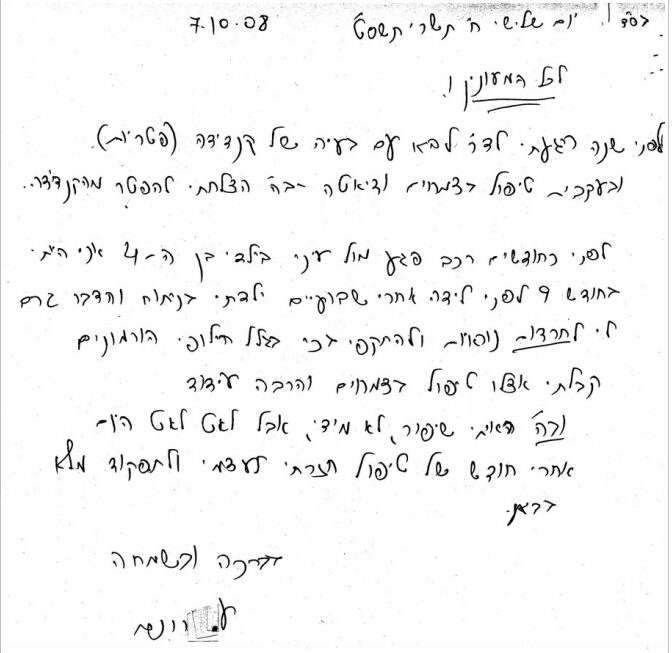 בס"ד יום שלישי ח' תשרי תשס"ט 7.10.08
לכל המעונין.
לפני שנה הגעתי לדר' ליבא עם בעיה של קנדידה (פטריות).
ובעקבות טיפול בצמחים ודיאטה ב"ה הצלחתי להפטר מהקנדידה..
לפני כחודשיים רכב פגע מול עיני בילדי בן ה-4 אני הייתי
בחודש 9 לפני לידה אחרי שבועיים ילדתי בניתוח והדבר גרם
לי לחרדות נוספות ולהתקפי בכי בגלל חילופי הורמונים
קבלתי אצלו טיפול בצמחים והרבה עידוד
ובה' ראיתי שיפור, לא מידי, אבל לאט לאט היום
אחרי חודש של טיפול חזרתי לעצמי ולתפקוד מלא
בברכה ובשמחה